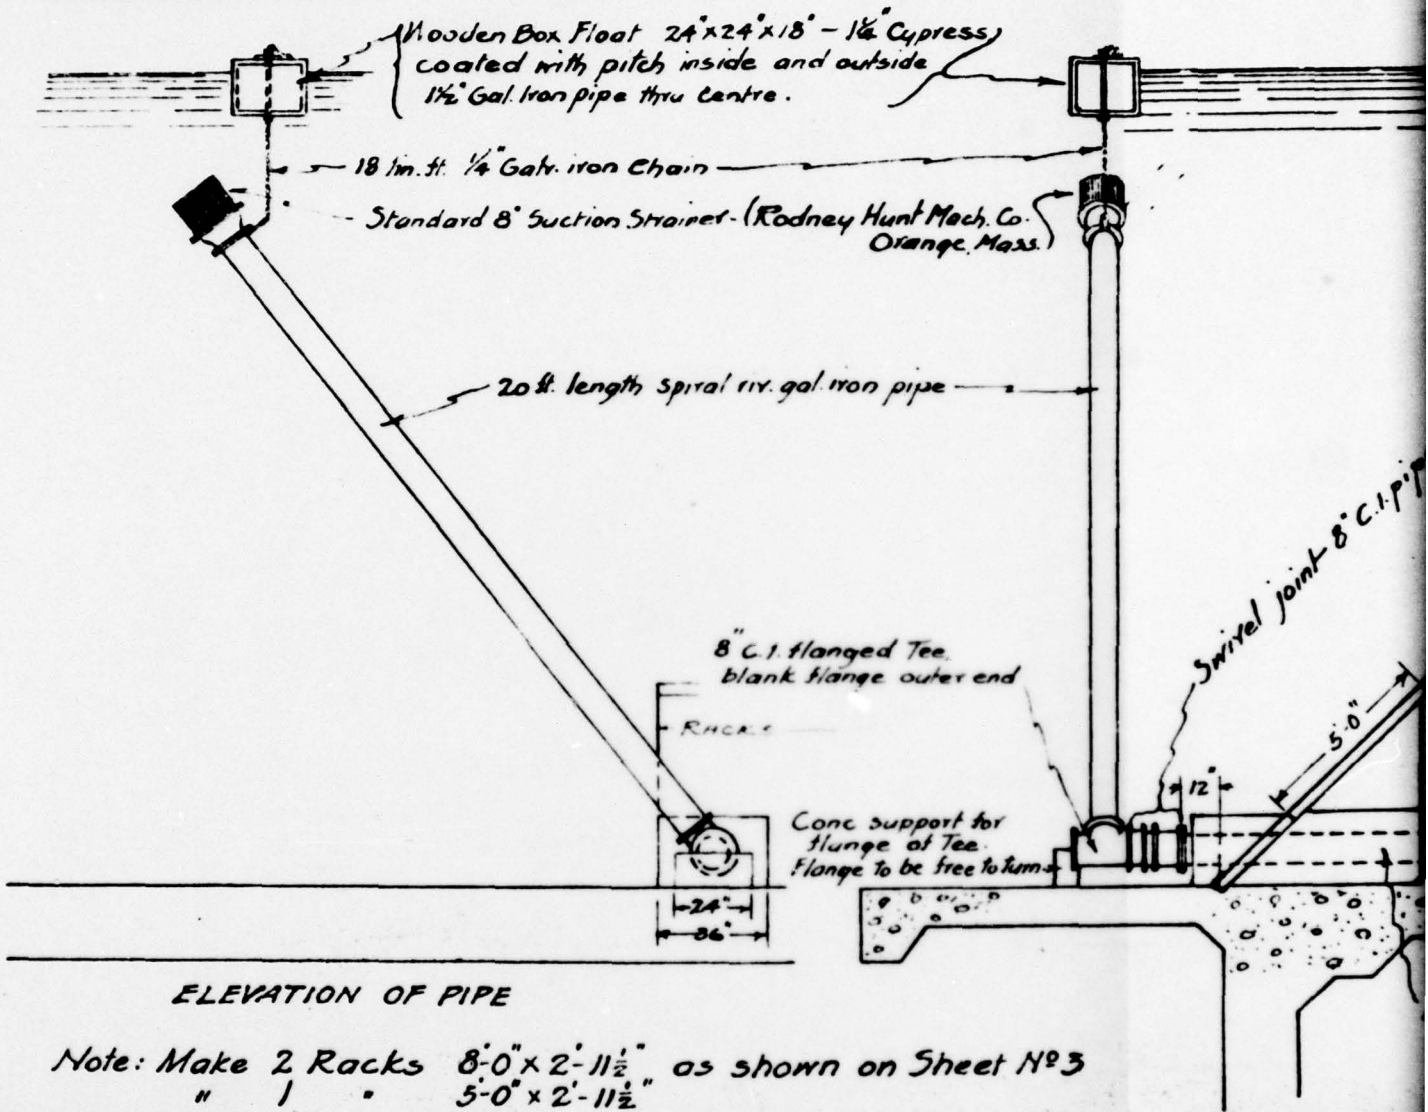 Wooden Box Float 24"x24"x18" - 1¼" Cypress
coated with pitch inside and outside
1½" Gal. Iron pipe thru centre.
18 lin. ft. ¼" Galv. iron Chain
Standard 8" Suction Strainer - (Rodney Hunt Mach. Co.
Orange, Mass.
20 ft. length spiral riv. gal. iron pipe
Swivel joint 8" C.I. pip
8" C.I. flanged Tee
blank flange outer end
RACKS
5'-0"
12"
Conc support for
flange of Tee.
Flange to be free to turn
24"
36"
ELEVATION OF PIPE
Note: Make 2 Racks 8'-0" x 2'-11½" as shown on Sheet Nº 3
" 1 " 5'-0" x 2'-11½"